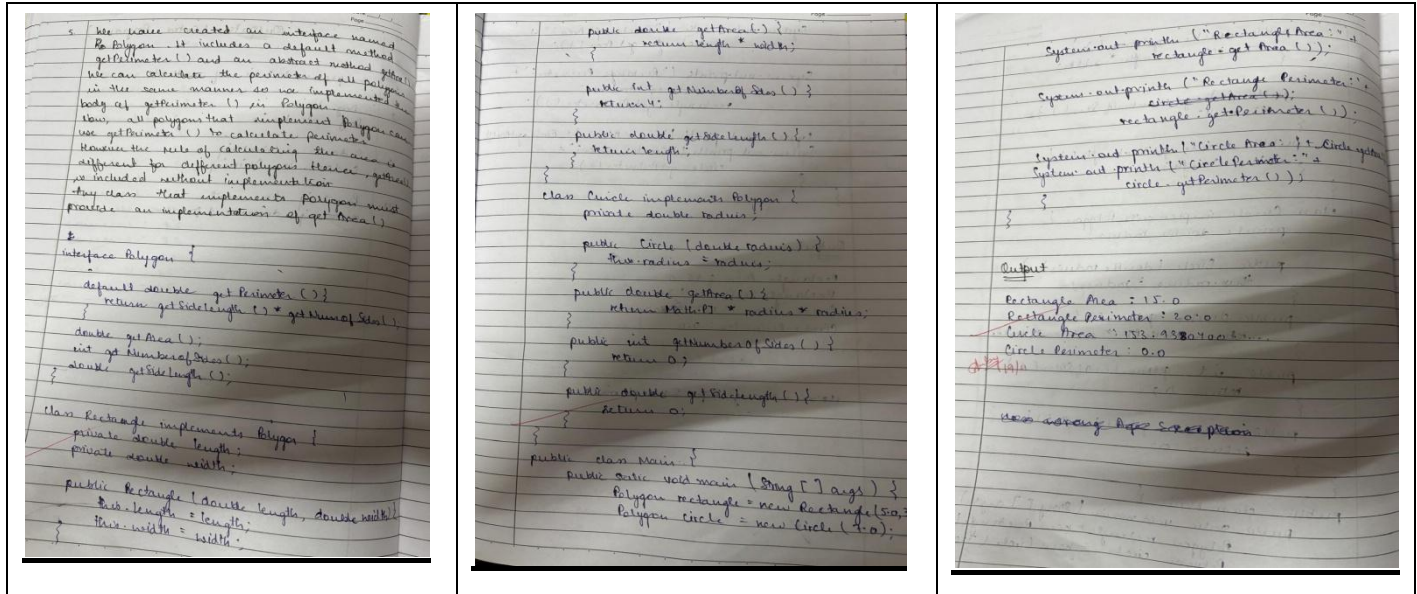 5. We have created an interface named
Polygon. It includes a default method
getPerimeter() and an abstract method getArea()
We can calculate the perimeter of all polygons
in the same manner so we implemented the
body of getPerimeter() in Polygon.
Now, all polygons that implement Polygon can
use getPerimeter() to calculate perimeter
However the rule of calculating the area is
different for different polygons Hence, getArea()
is included without implementation
Any class that implements polygon must
provide an implementation of getArea()
interface Polygon {
default double getPerimeter() {
return getSideLength() * getNumofSides();
}
double getArea();
int getNumberofSides();
double getSideLength();
}
class Rectangle implements Polygon {
private double length;
private double width;
public Rectangle (double length, double width) {
this.length = length;
this.width = width;
}
public double getArea() {
return length * width;
}
public int getNumberOfSides() {
return 4;
}
public double getSideLength() {
return length;
}
}
class Circle implements Polygon {
private double radius;
public Circle (double radius) {
this.radius = radius;
}
public double getArea() {
return Math.PI * radius * radius;
}
public int getNumberOfSides() {
return 0;
}
public double getSideLength() {
return 0;
}
}
public class Main {
public static void main (String [] args) {
Polygon rectangle = new Rectangle (5.0, 3
Polygon circle = new Circle (7.0);
System.out.println ("Rectangle Area:" +
rectangle.getArea());
System.out.println ("Rectange Perimeter:"
circle.getArea();
rectangle.getPerimeter());
System.out.println ("Circle Area: " + Circle.getArea
System.out.println ("Circle Perimeter:" +
circle.getPerimeter());
}
}
Output
Rectangle Area : 15.0
Rectangle Perimeter : 20.0
Circle Area : 153.93804003...
Circle Perimeter : 0.0